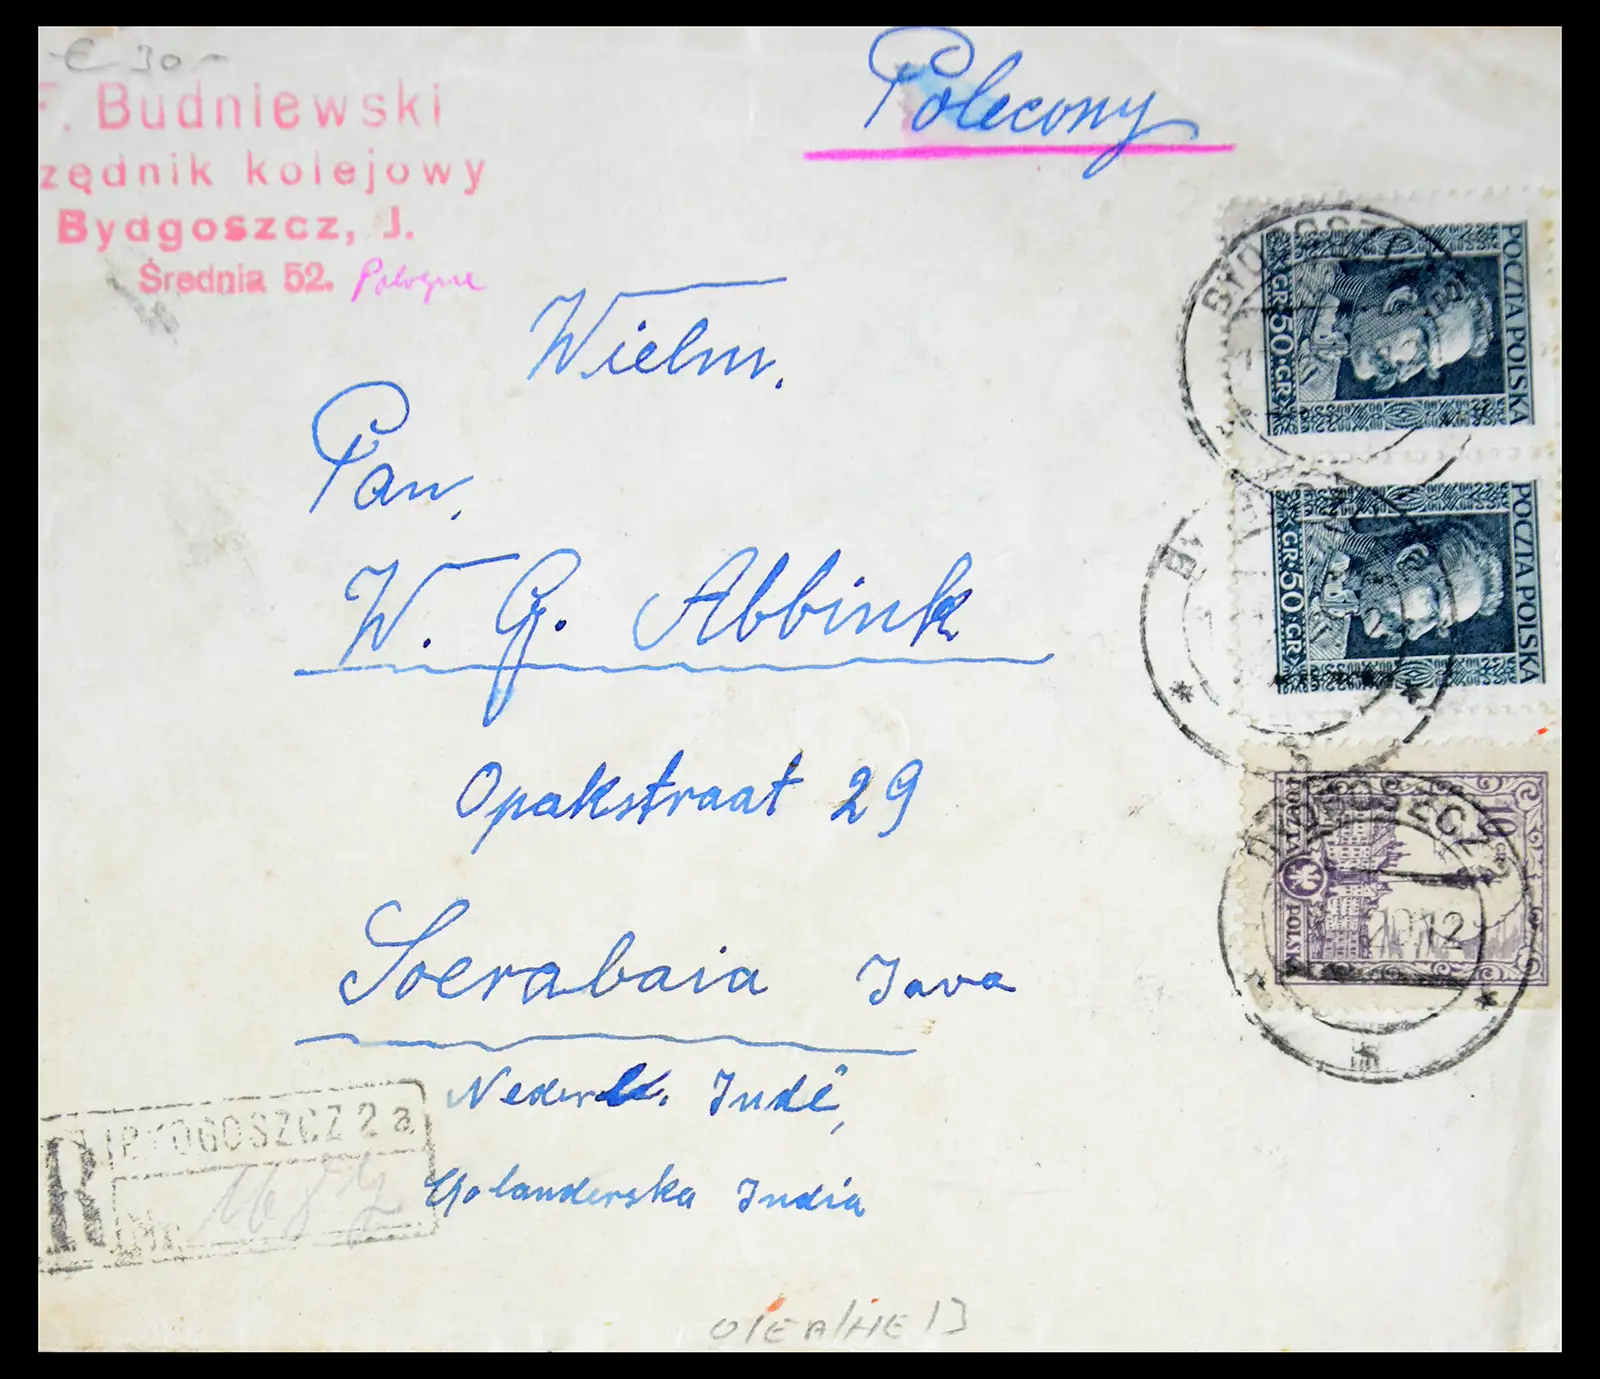 € 30.-
F. Budniewski
zędnik kolejowy
Bydgoszcz, J.
Średnia 52. Pologne
Polecony
Wielm.
Pan.
W. G. Abbink
Opakstraat 29
Soerabaia Java
Nederl. Indë,
Golanderska India
R BYDGOSZCZ 2a
Nr
POCZTA POLSKA
GR. 50. GR
POCZTA POLSKA
GR. 50. GR
10 GR
POCZTA POLSKA
BYDGOSZCZ
20 12